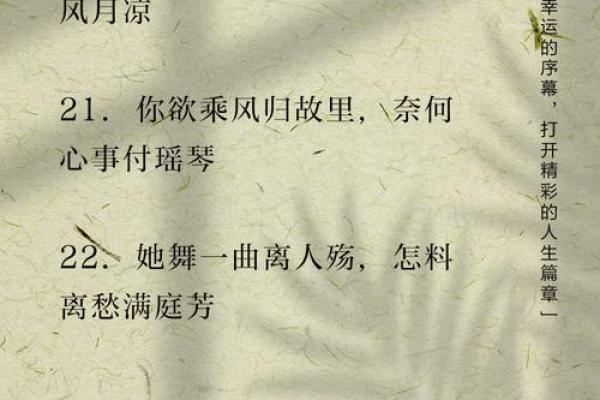 风月凉
21. 你欲乘风归故里，奈何
心事付瑶琴
22. 她舞一曲离人殇，怎料
离愁满庭芳
幸运的序幕，打开精彩的人生篇章」